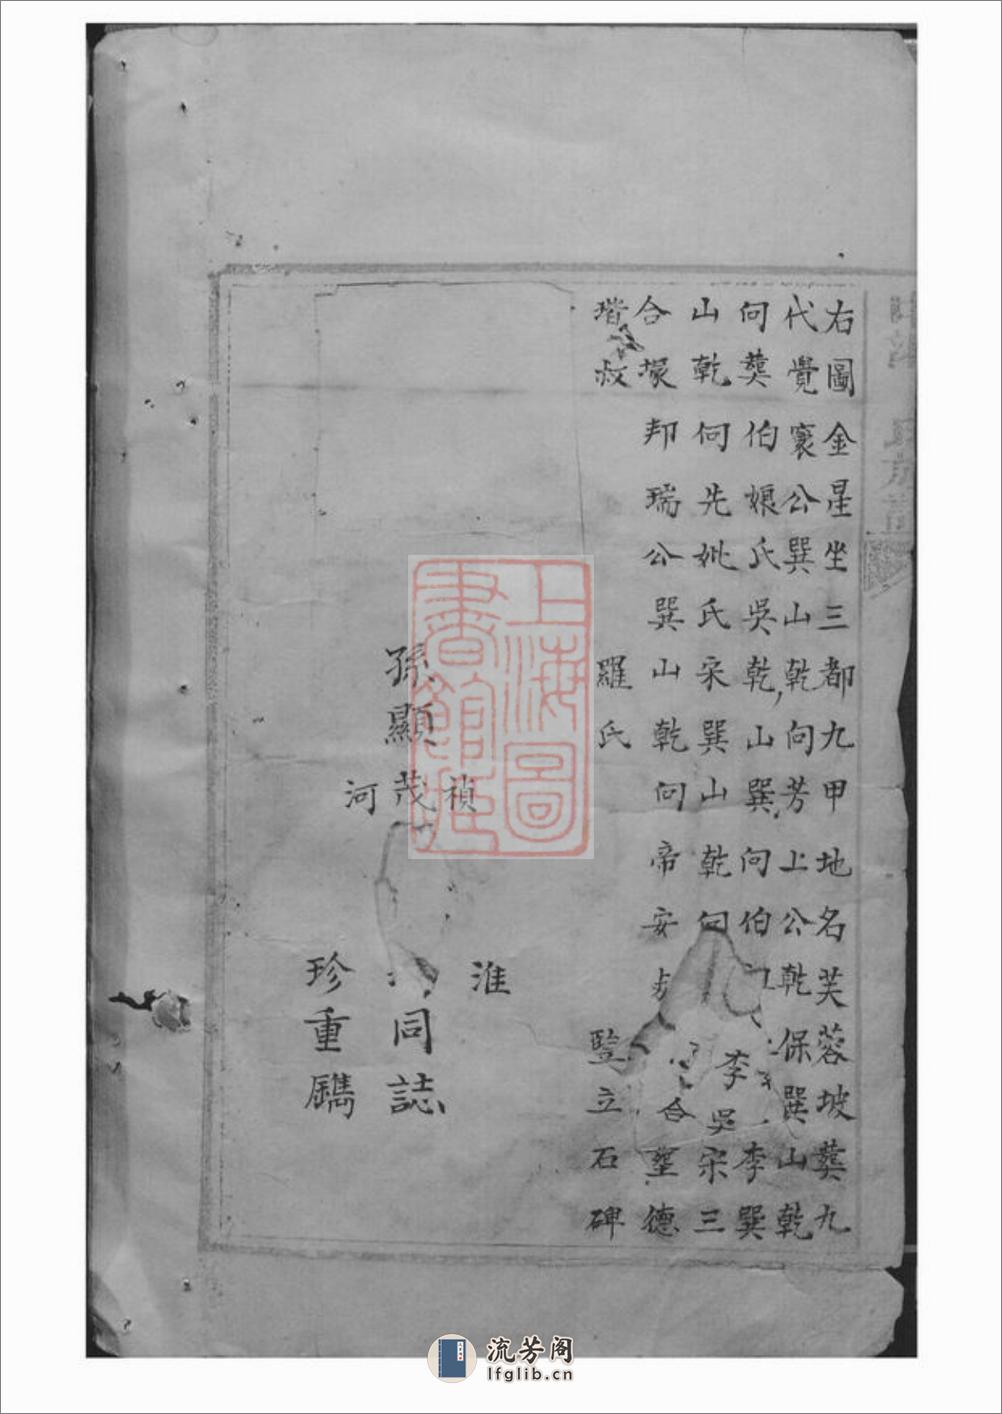 右圖金星坐三都九甲地名芙蓉坡塟九
代覺寰公巽山乾向芳上公乾保巽山乾
向塟伯娘氏吳乾山巽向伯李巽
山乾向先妣氏宋巽山乾向李吳宋三
合塚邦瑞公巽山乾向帝安合塋德
瑎叔羅氏豎立石碑
淮
孫顯禎茂河同誌
珍重鐫
上海圖書館藏
流芳阁
lfglib.cn